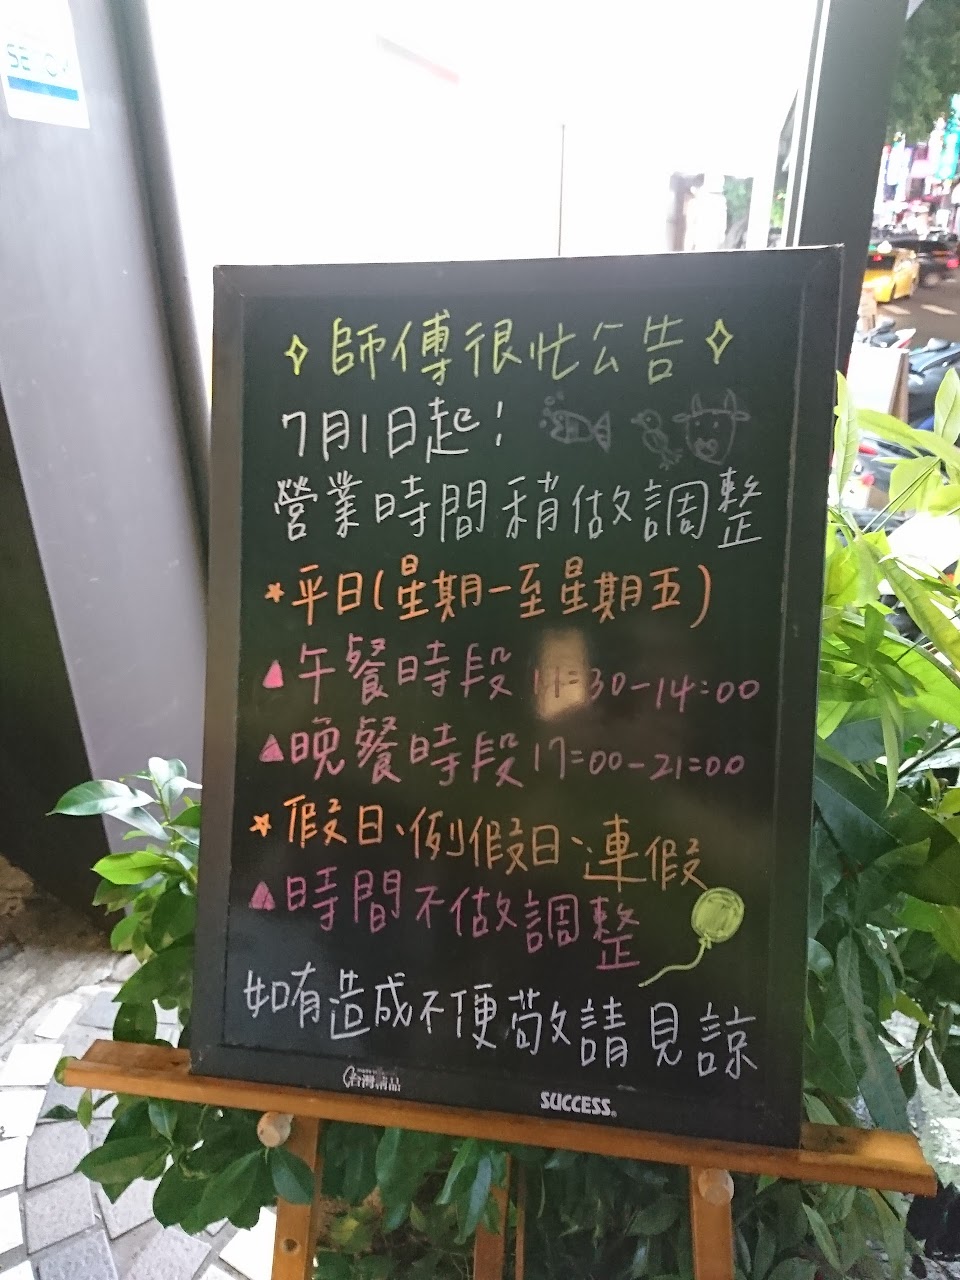 師傅很忙公告
7月1日起!
營業時間稍做調整
*平日(星期一至星期五)
▲午餐時段 11:30-14:00
▲晚餐時段 17:00-21:00
*假日、例假日、連假
▲時間不做調整
如有造成不便敬請見諒
台灣精品
SUCCESS